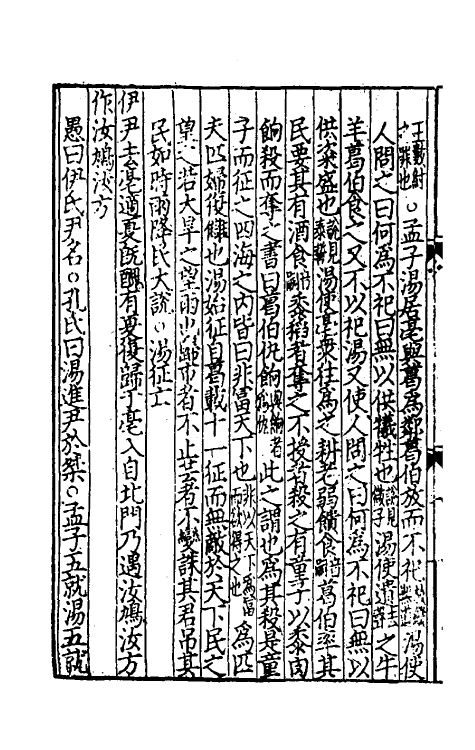 王數討之罪也○孟子湯居亳與葛為鄰葛伯放而不祀湯使
人問之曰何為不祀曰無以供犧牲也說見微子湯使遺之牛
羊葛伯食之又不以祀湯又使人問之曰何為不祀曰無以
供粢盛也說見泰誓湯使亳衆往為之耕老弱饋食音嗣葛伯率其
民要其有酒食音嗣黍稻者奪之不授者殺之有童子以黍肉
餉殺而奪之書曰葛伯仇餉與餉者為仇此之謂也為其殺是童
子而征之四海之內皆曰非富天下也非以天下為富而欲得之也為匹
夫匹婦復讎也湯始征自葛載十一征而無敵於天下民之
望之若大旱之望雨也歸市者不止芸者不變誅其君弔其
民如時雨降民大說○湯征亡
伊尹去亳適夏既醜有夏復歸于亳入自北門乃遇汝鳩汝方
作汝鳩汝方
愚曰伊氏尹名○孔氏曰湯進尹於桀○孟子五就湯五就